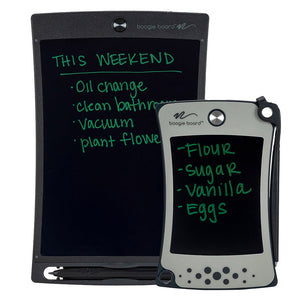 boogie board
THIS WEEKEND
· Oil change
· clean bathroom
· Vacuum
· plant flowe
boogie board
- FLOUR
- SUGAR
- Vanilla
- EGGS